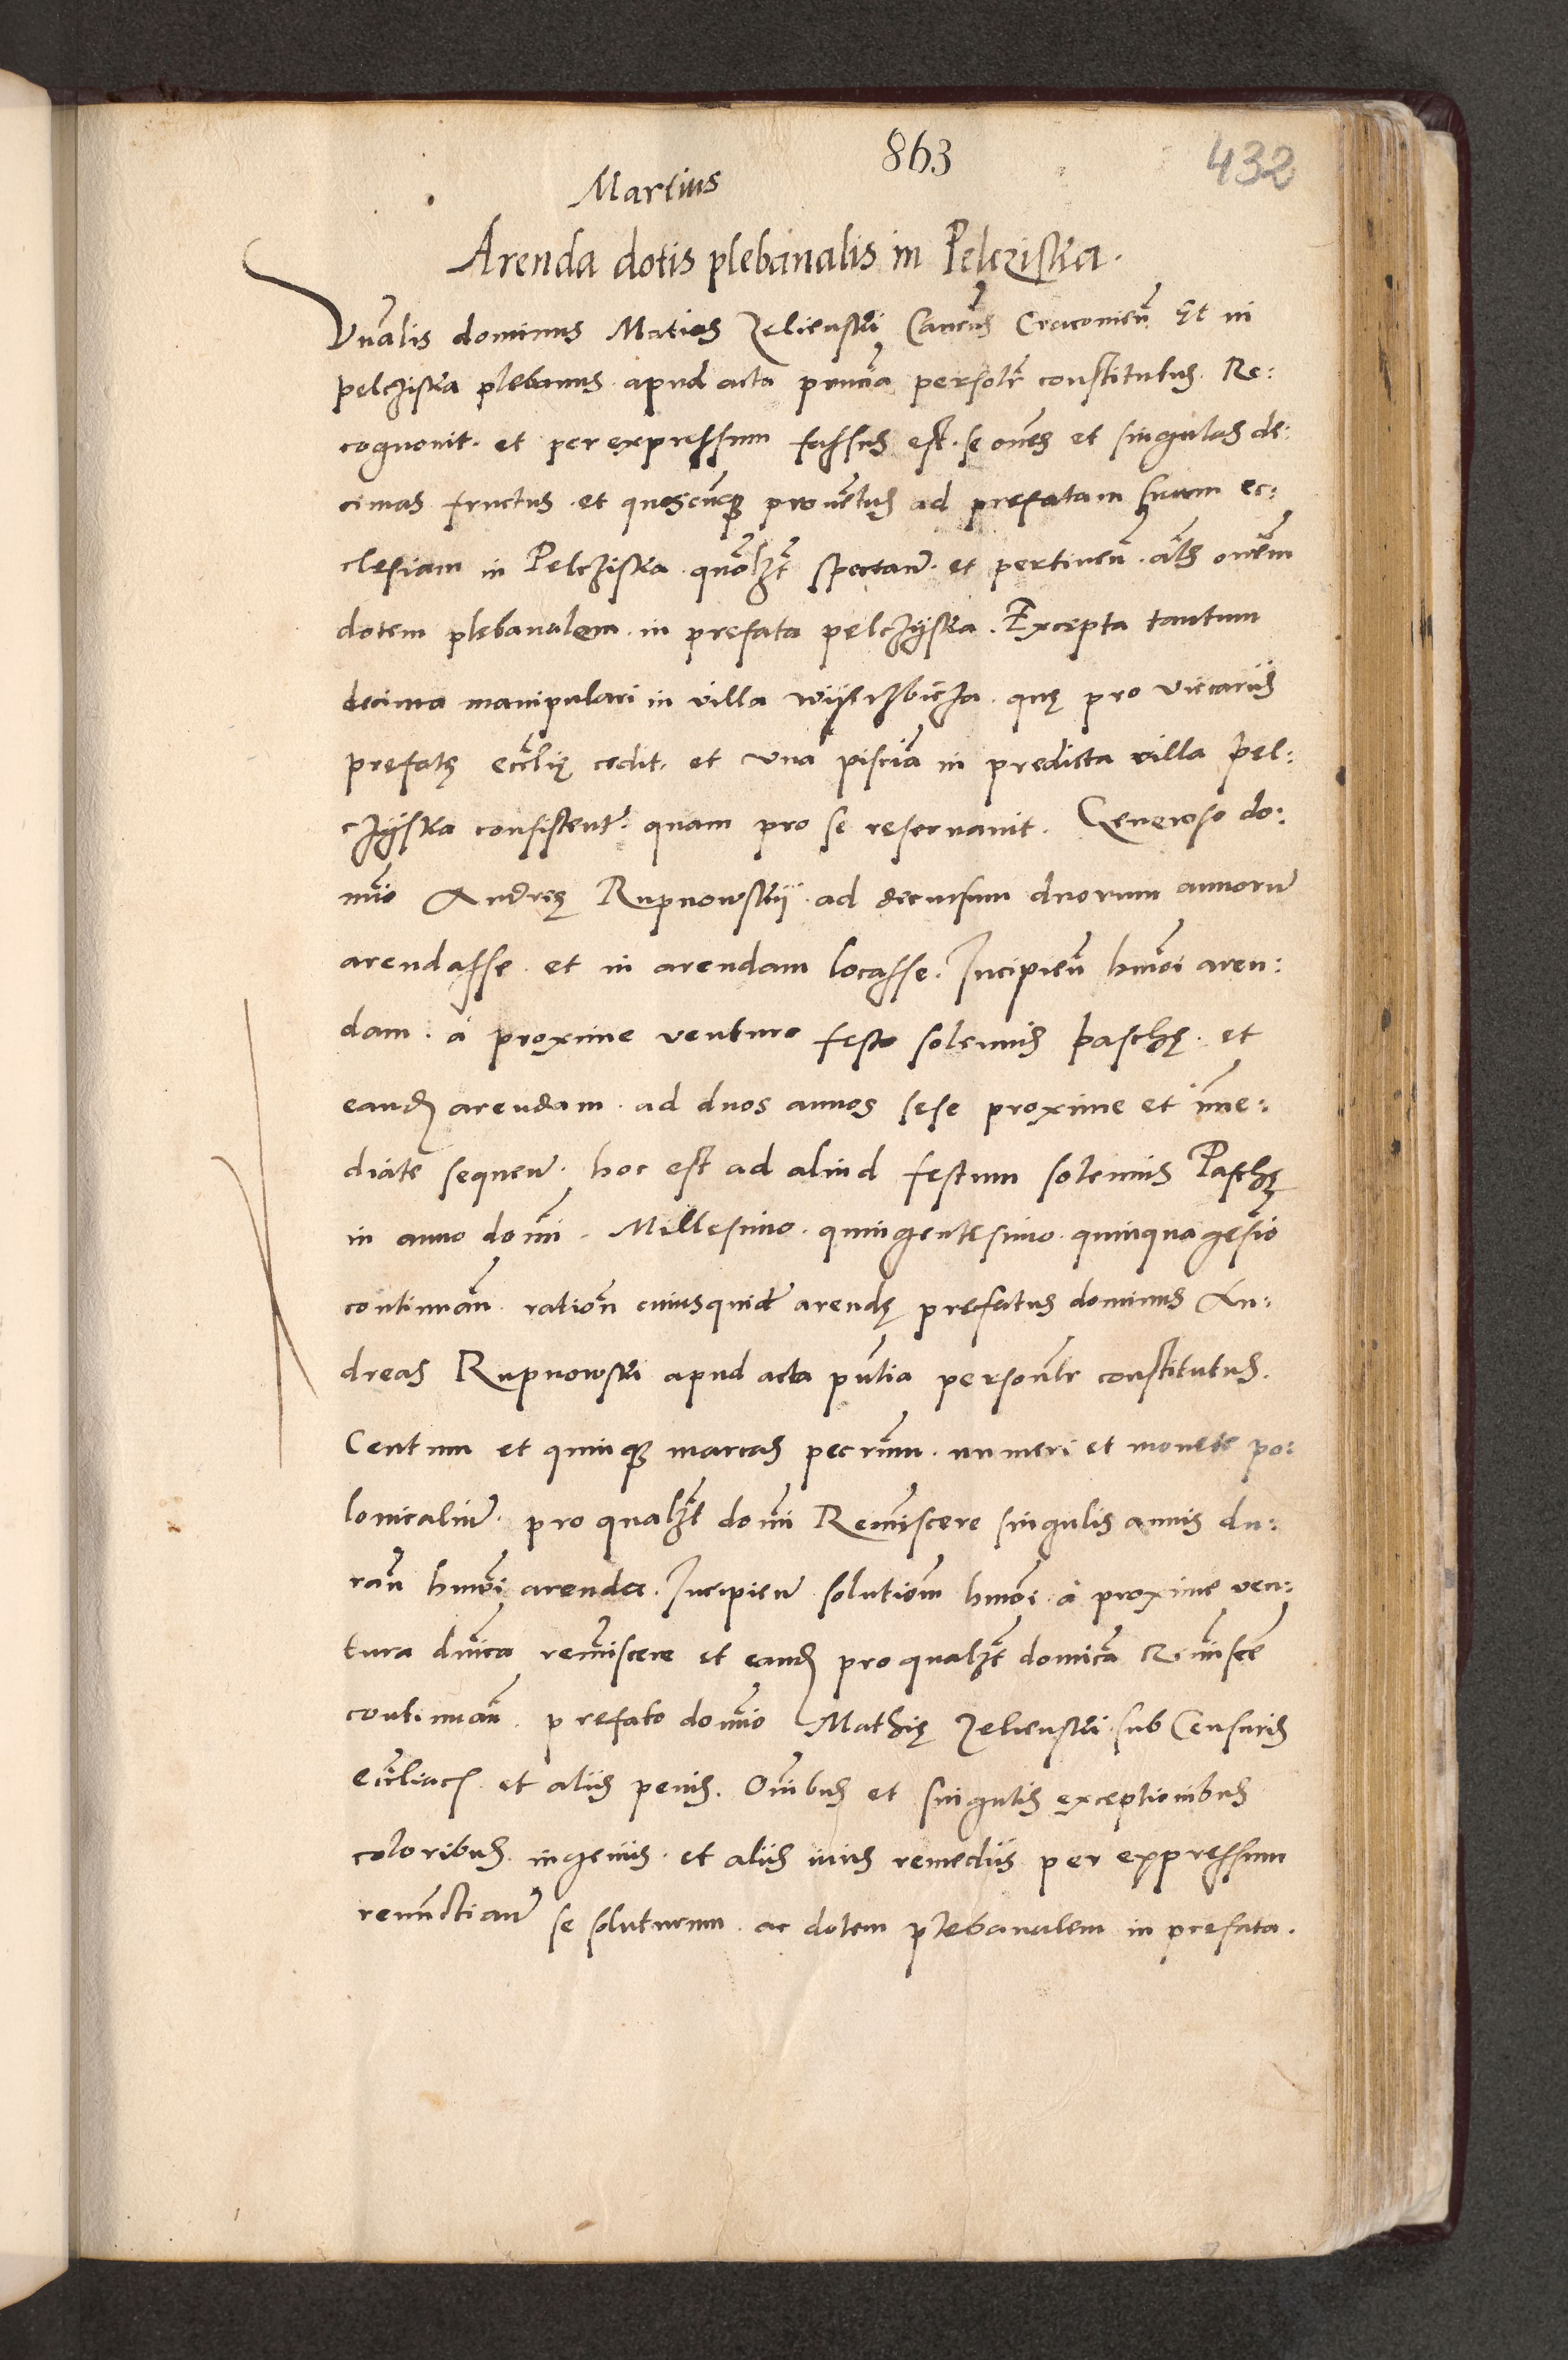 863
432
Martius
Arenda dotis plebanalis in Pelcziska.
Vn̄alis dominus Matias Zelienski Can̄cus Cracovien̄ Et in
pelcziska plebanus apud acta pn̄cia persolr̄ constitutus. Re:
cognovit. et per expressum fassus est. se om̄es et singulas de:
cimas fructus. et quoscūq; provētus ad prefatam suam ec:
clesiam in Pelcziska quōlz̄t spectan̄. et pertinen̄. al̄s om̄em
dotem plebanalem in prefata pelczyska. Excepta tantum
decima manipulari in villa quę pro vicariis
prefatę eccl̄ię cedit. et una pisci̅a in predicta villa pel:
czyska consistent̄. quam pro se reservavit. Generoso do:
mīo Andreę Rupnowskij. ad decursum duorum annorū
arendasse. et in arendam locasse. Incipien̄ hmōi aren:
dam. à proxime venturo festo solennis paschę. et
eand̄ arendam. ad duos annos sese proxime et im̄e:
diate sequen̄. hoc est ad aliud festum solennis Paschę
in anno domī. Millesimo. quingentesimo. quinquagesīo
continuan̄. ration̄ cuiusquid̄ arendę prefatus dominus An:
dreas Rupnowski apud acta pn̄tia personlr̄ constitutus.
Centum et quinq; marcas pecunn̄. numeri et monete po:
lonicaliū. pro qualz̄t domī Remīscere singulis annis du:
ran̄ hmōi arenda. Incipien̄ solutiōm hmōi à proxime ven:
tura dnīca remīscere et eand̄ pro qualz̄t domīca Remīsce
continuan̄. prefato domīo Mathię Zelienski sub Censuris
eccl̄iacs. et aliis penis. Om̄ibus et singulis exceptionibus
coloribus. ingeniis. et aliis iuris remediis per expressum
renūctian̄ se soluturum. ac dotem plebanalem in prefata.